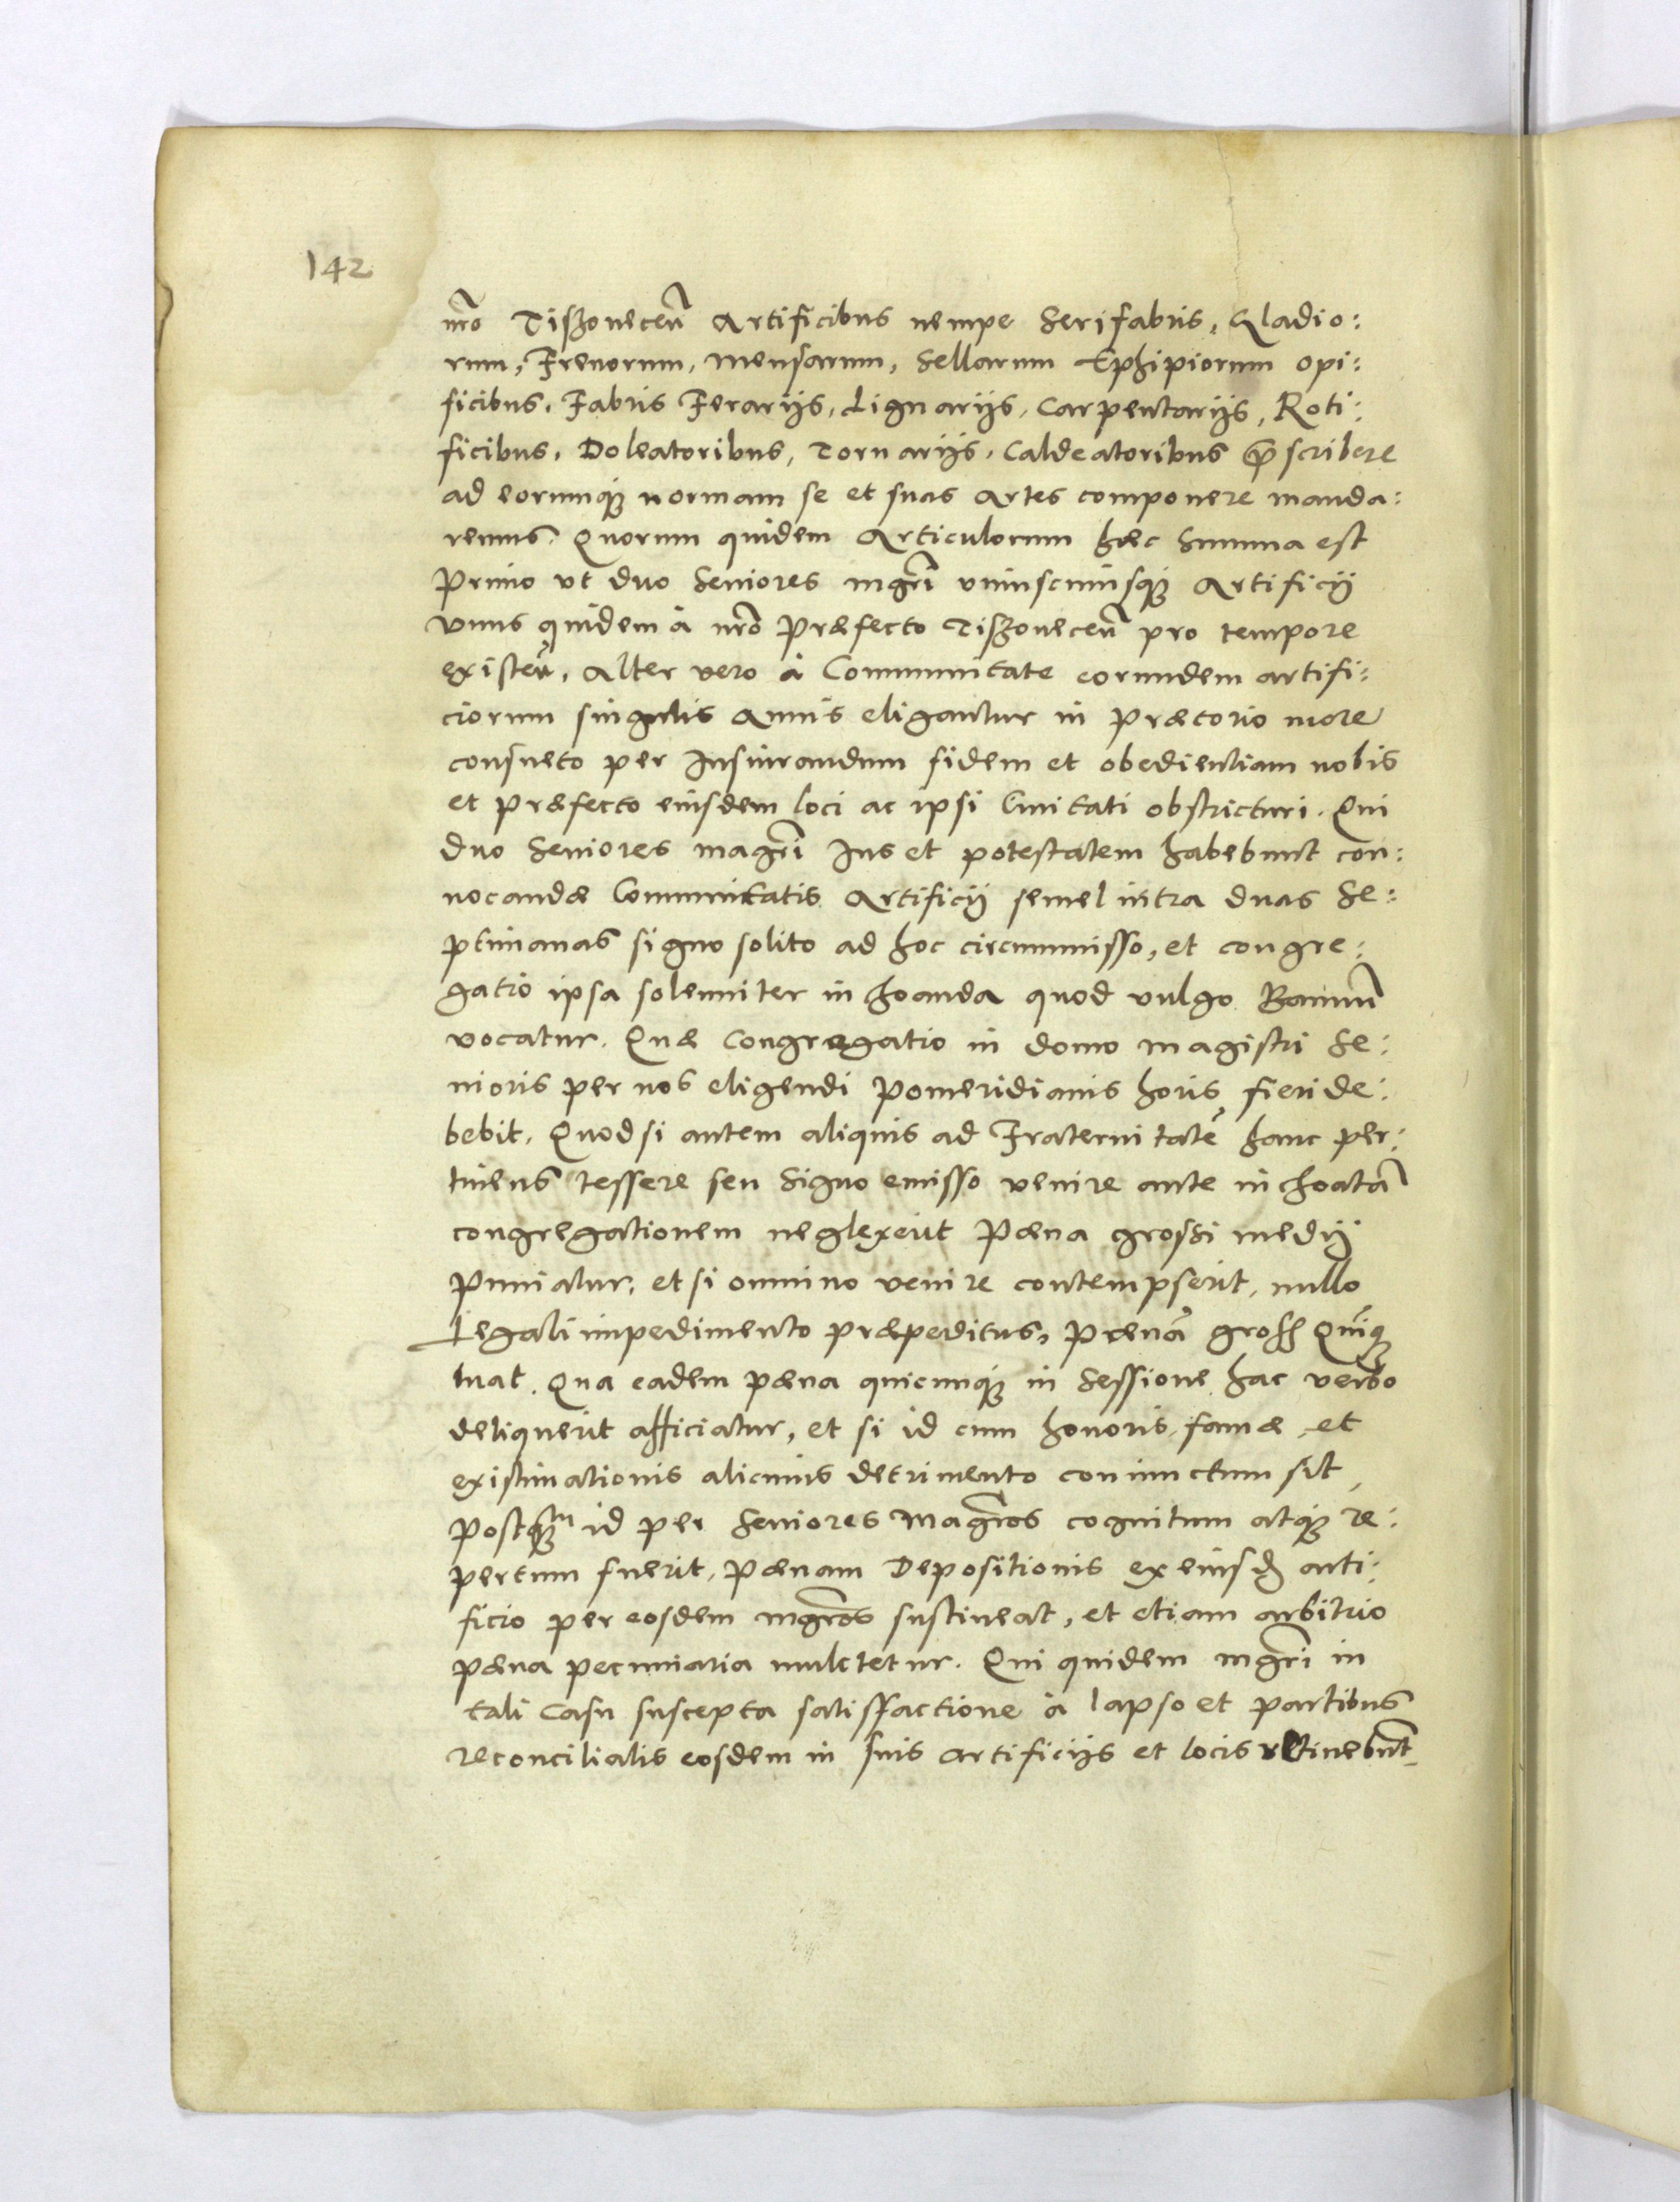 142
nr̃o Tißonecen̄ Artificibus nempe Serifabris, Gladio:
rum, Frenorum, Mensarum, Sellarum Ephipiorum opi:
ficibus. Fabris Ferarijs, Lignarijs, Carpentarijs, Roti:
ficibus, Doleatoribus, Tornarijs, Caldeatoribus p̄scribere
ad eorumq; normam se et suas Artes componere manda:
remus. Quorum quidem Articulorum hæc Summa est
Primo vt duo Seniores mgr̃i vniuscuiusq; Artificij
Vnus quidem à nr̃o Præfecto Tißonecen̄ pro tempore
existen̄, Alter vero à Communitate eorundem artifi:
ciorum singulis Annis eligantur in Prætorio more
consueto per Iusiurandum fidem et obedientiam nobis
et Præfecto eiusdem loci ac ipsi Ciuitati obstricturi. Qui
duo Seniores magr̃i Ius et potestatem habebunt con:
uocandæ Communitatis Artificij semel intra duas Se:
ptimanas signo solito ad hoc circummisso, et congre:
gatio ipsa solenniter inchoanda quod vulgo Bannum
vocatur. Quæ Congregatio in domo magistri Se:
nioris per nos eligendi Pomeridianis horis fieri de:
bebit. Quod si autem aliquis ad Fraternitatē hanc per:
tinens tessere seu Signo emisso venire ante inchoatā
congregationem neglexerit Pæna grossi medij
puniatur, et si omnino venire contempserit, nullo
Legali impedimento præpeditus, Pænā gross Quīq;
luat. Qua eadem pæna quicunq; in Sessione hac verbo
deliquerit afficiatur, et si id cum honoris famæ et
existimationis alicuius detrimento coniunctum sit,
postq̄m id per Seniores Magr̃os cognitum atq; re:
pertum fuerit, Pænam Depositionis ex eiusd̄ arti:
ficio per eosdem mgr̃os sustineat, et etiam arbitrio
pæna pecuniaria mulctetur. Qui quidem mgr̃i in
tali Casu suscepta satisfactione à lapso et partibus
reconciliatis eosdem in suis artificijs et locis retinebunt